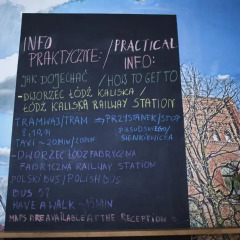 INFO PRAKTYCZNE: / PRACTICAL INFO:
JAK DOJECHAĆ / HOW TO GET TO
-DWORZEC ŁÓDŹ KALISKA /
ŁÓDŹ KALISKA RAILWAY STATION
TRAMWAJ/TRAM → PRZYSTANEK/STOP
8, 12, 14 PIŁSUDSKIEGO/
TAXI ~20MIN/20ZŁ SIENKIEWICZA
-DWORZEC ŁÓDŹ FABRYCZNA
FABRYCZNA RAILWAY STATION
POLSKI BUS/POLISH BUS
BUS 57
HAVE A WALK ~15MIN
MAPS ARE AVAILABLE AT THE RECEPTION